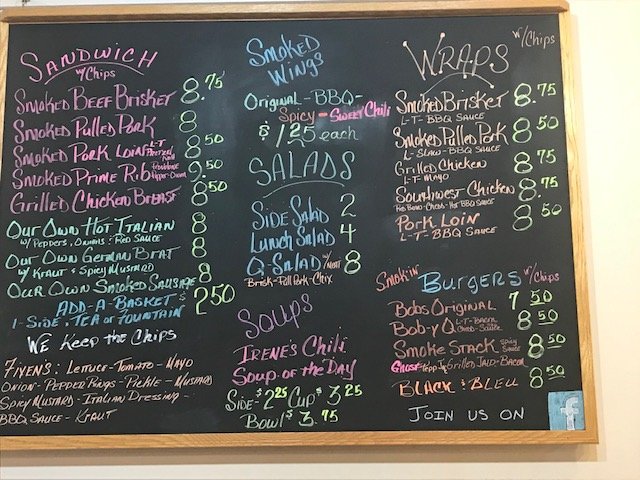 SANDWICH
w/Chips
Smoked Beef Brisket 8.75
Smoked Pulled Pork 8
Smoked Pork Loin L-T 8.50
Smoked Prime Rib Provolone 9.50
Grilled Chicken Breast 8.50
Our Own Hot Italian 8
w/ Peppers, Onions & Red Sauce
Our Own German Brat 8
w/ Kraut & Spicy Mustard
Our Own Smoked Sausage 8
Add-A-Basket $2.50
1-Side & Tea or Fountain
We Keep the Chips
Fixens: Lettuce-Tomato-Mayo
Onion-Pepper Rings-Pickle-Mustard
Spicy Mustard-Italian Dressing-
BBQ Sauce-Kraut
Smoked
Wings
Original-BBQ-
Spicy-Sweet Chili
$1.25 each
SALADS
Side Salad 2
Lunch Salad 4
Q-Salad w/Meat 8
Brisk-Pull Pork-Chix
Soups
Irene's Chili
Soup of the Day
Side-$2.25 Cup $3.25
Bowl $3.75
WRAPS w/Chips
Smoked Brisket 8.75
L-T-BBQ Sauce
Smoked Pulled Pork 8.50
L-Slaw-BBQ Sauce
Grilled Chicken 8.75
L-T-Mayo
Southwest Chicken 8.75
Chedd-Hot BBQ Sauce
Pork Loin 8.50
L-T-BBQ Sauce
Smokin' Burgers w/Chips
Bobs Original 7.50
Bob-y Q L-T-Bacon Chedd-Sauce 8.50
Smoke Stack Spicy Sauce 8.50
Ghost Pepp-J-Grilled Jalp-Bacon
Black & Bleu 8.50
Join us on f